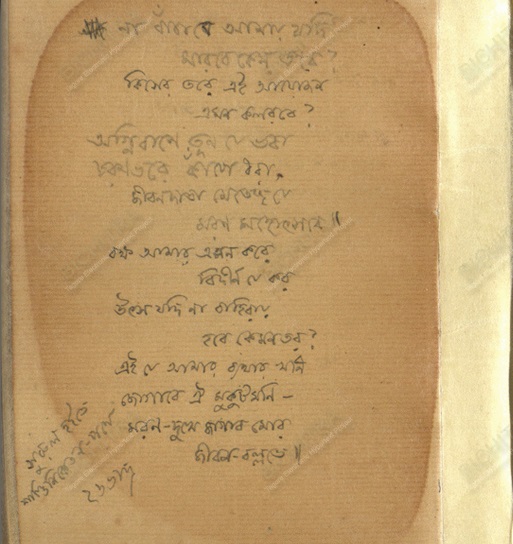 না বাঁচাবে আমায় যদি
মারবে কেন তবে?
কিসের তরে এই আয়োজন
এমন কলরবে?
অগ্নিবাণে তূণ যে ভরা
চরণভরে কাঁপে ধরা,
জীবনদাতা মেতেছ যে
মরণ মহোৎসবে॥
বক্ষ আমার এমন করে
বিদীর্ণ যে কর
উৎস যদি না বাহিরায়
হবে কেমনতর?
এই যে আমার ব্যথার খনি
জোগাবে ঐ মুকুটমণি –
মরণ-দুখে জাগাব মোর
জীবন-বল্লভে॥
সুরুল হইতে
শান্তিনিকেতন-পথে
২৬ ভাদ্র